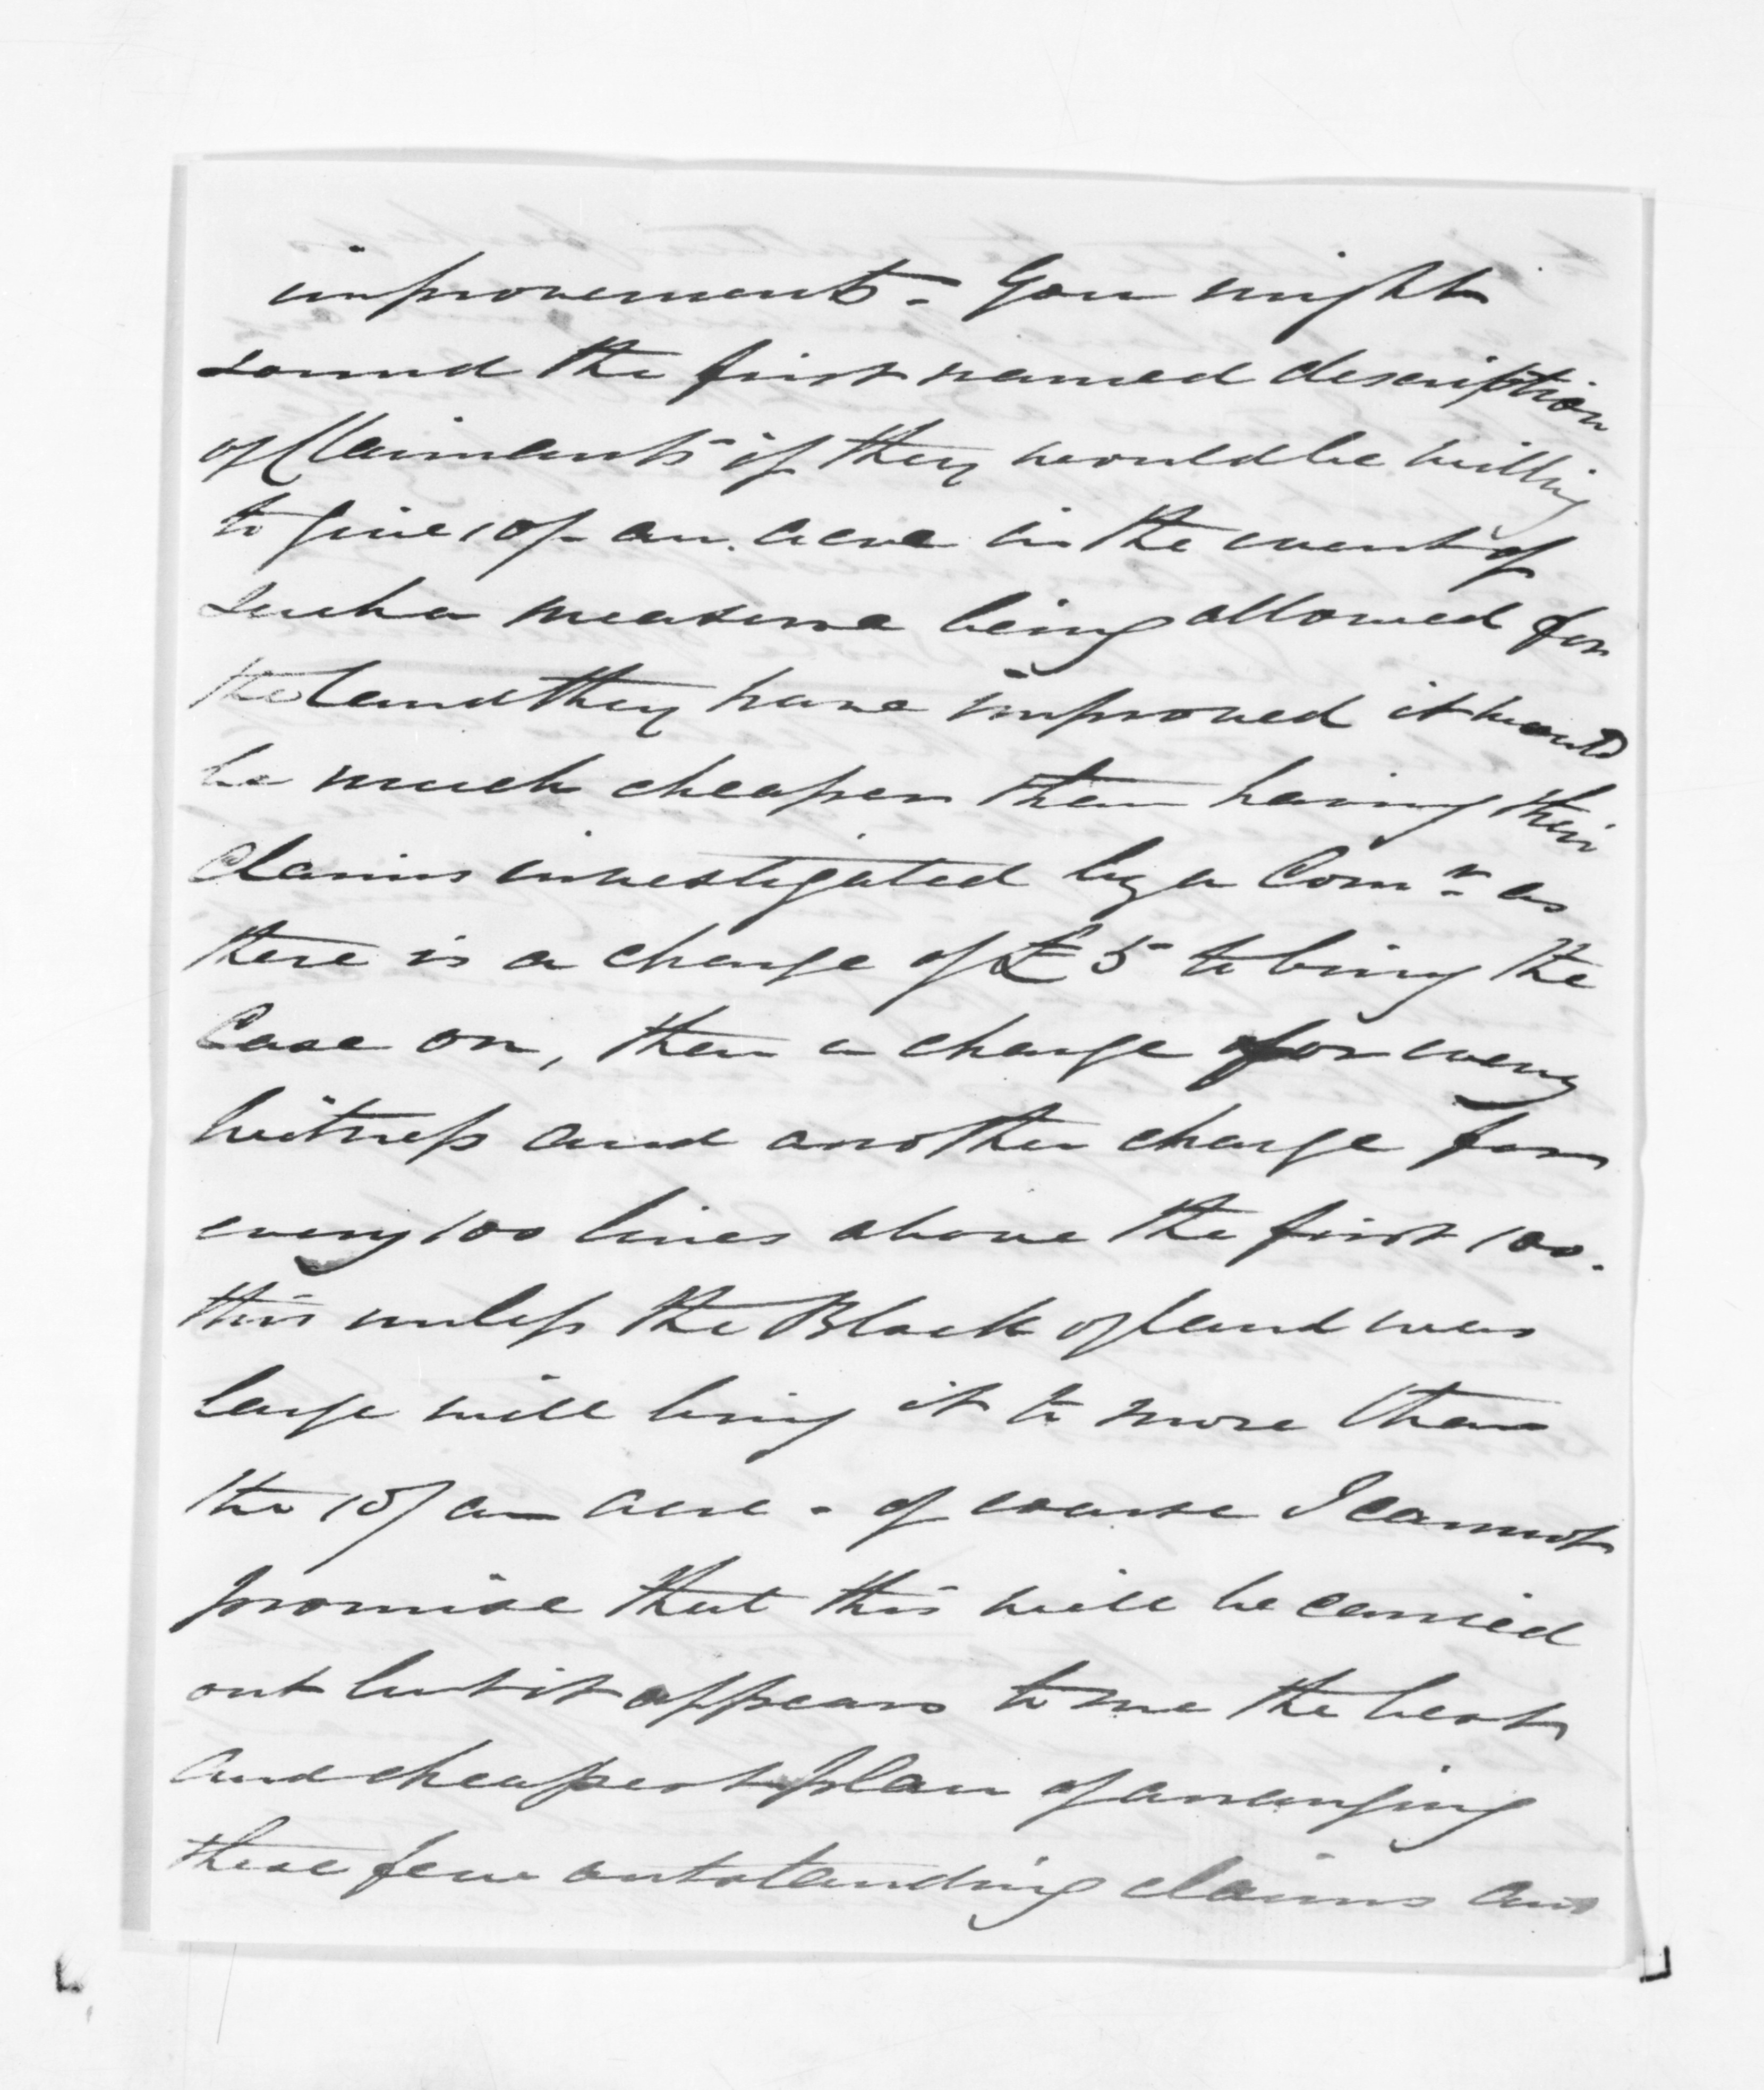 improvements - You might
sound the first named description
of Claimants if they would be willing
to give 10/- an acre in the event of
such a measure being allowed for
the land they have improved it would
be much cheaper than having their
claims investigated by a Comr. as
there is a charge of £5 to bring the
Case on, then a charge for every
witness and another charge for
every 100 lines above the first 100.
this unless the Block of land was
large will bring it to more than
the 10/ an acre - of course I cannot
promise that this will be carried
out but it appears to me the best
and cheapest plan of arranging
these few outstanding claims and